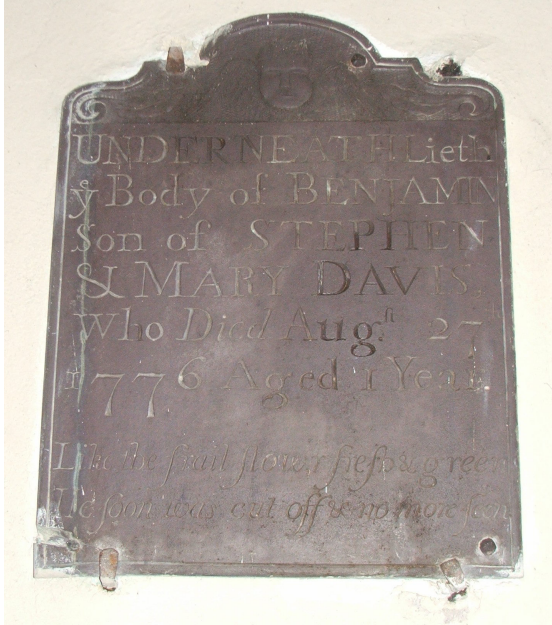 UNDERNEATH Lieth
yͤ Body of BENJAMIN
Son of STEPHEN
& MARY DAVIS,
who Died Augſt 27th
1776 Aged 1 Year.
Like the frail flower freſh & green
He ſoon was cut off & no more ſeen